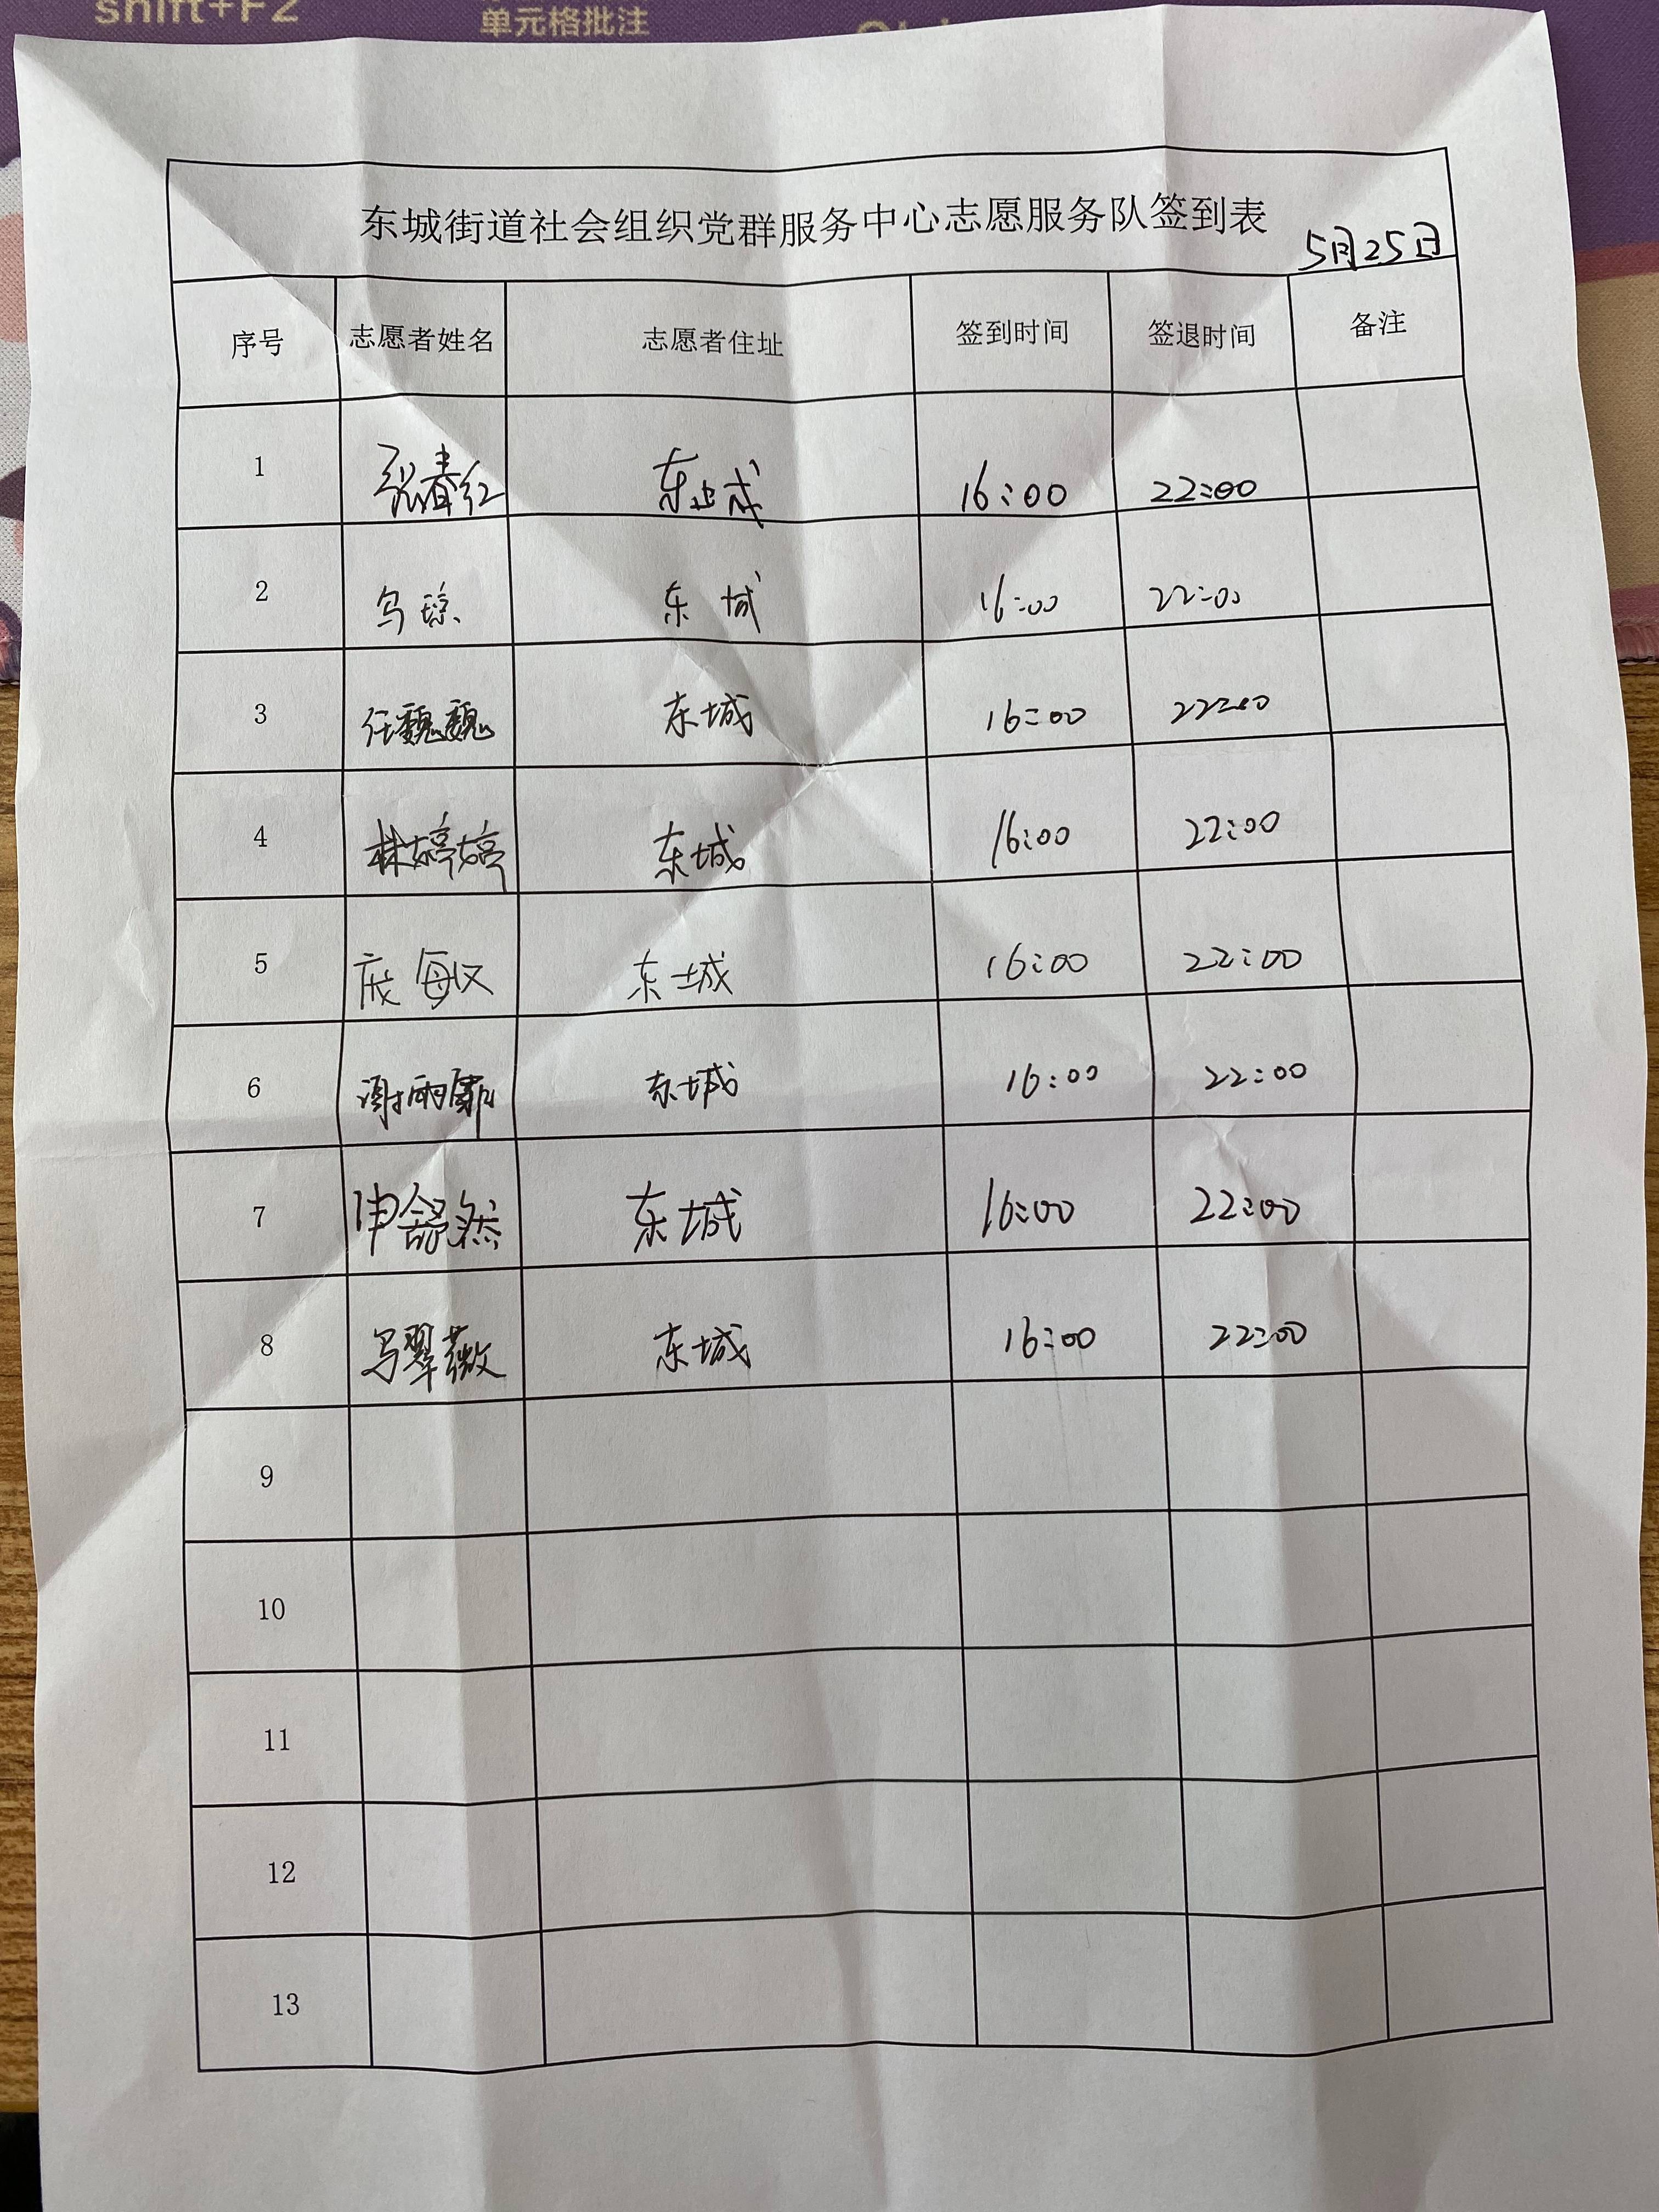 shift+F2
单元格批注
东城街道社会组织党群服务中心志愿服务队签到表
5月25日
序号 志愿者姓名 志愿者住址 签到时间 签退时间 备注
1 张春红 东城 16:00 22:00
2 乌琼 东城 16:00 22:00
3 任魏魏 东城 16:00 22:00
4 林婷婷 东城 16:00 22:00
5 庞敏 东城 16:00 22:00
6 谢雨霏 东城 16:00 22:00
7 申舒然 东城 16:00 22:00
8 马翠薇 东城 16:00 22:00
9
10
11
12
13